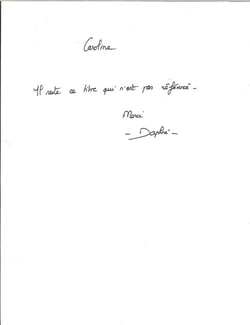 Caroline
Il reste ce titre qui n'est pas référencé.
Merci
- Daphné -